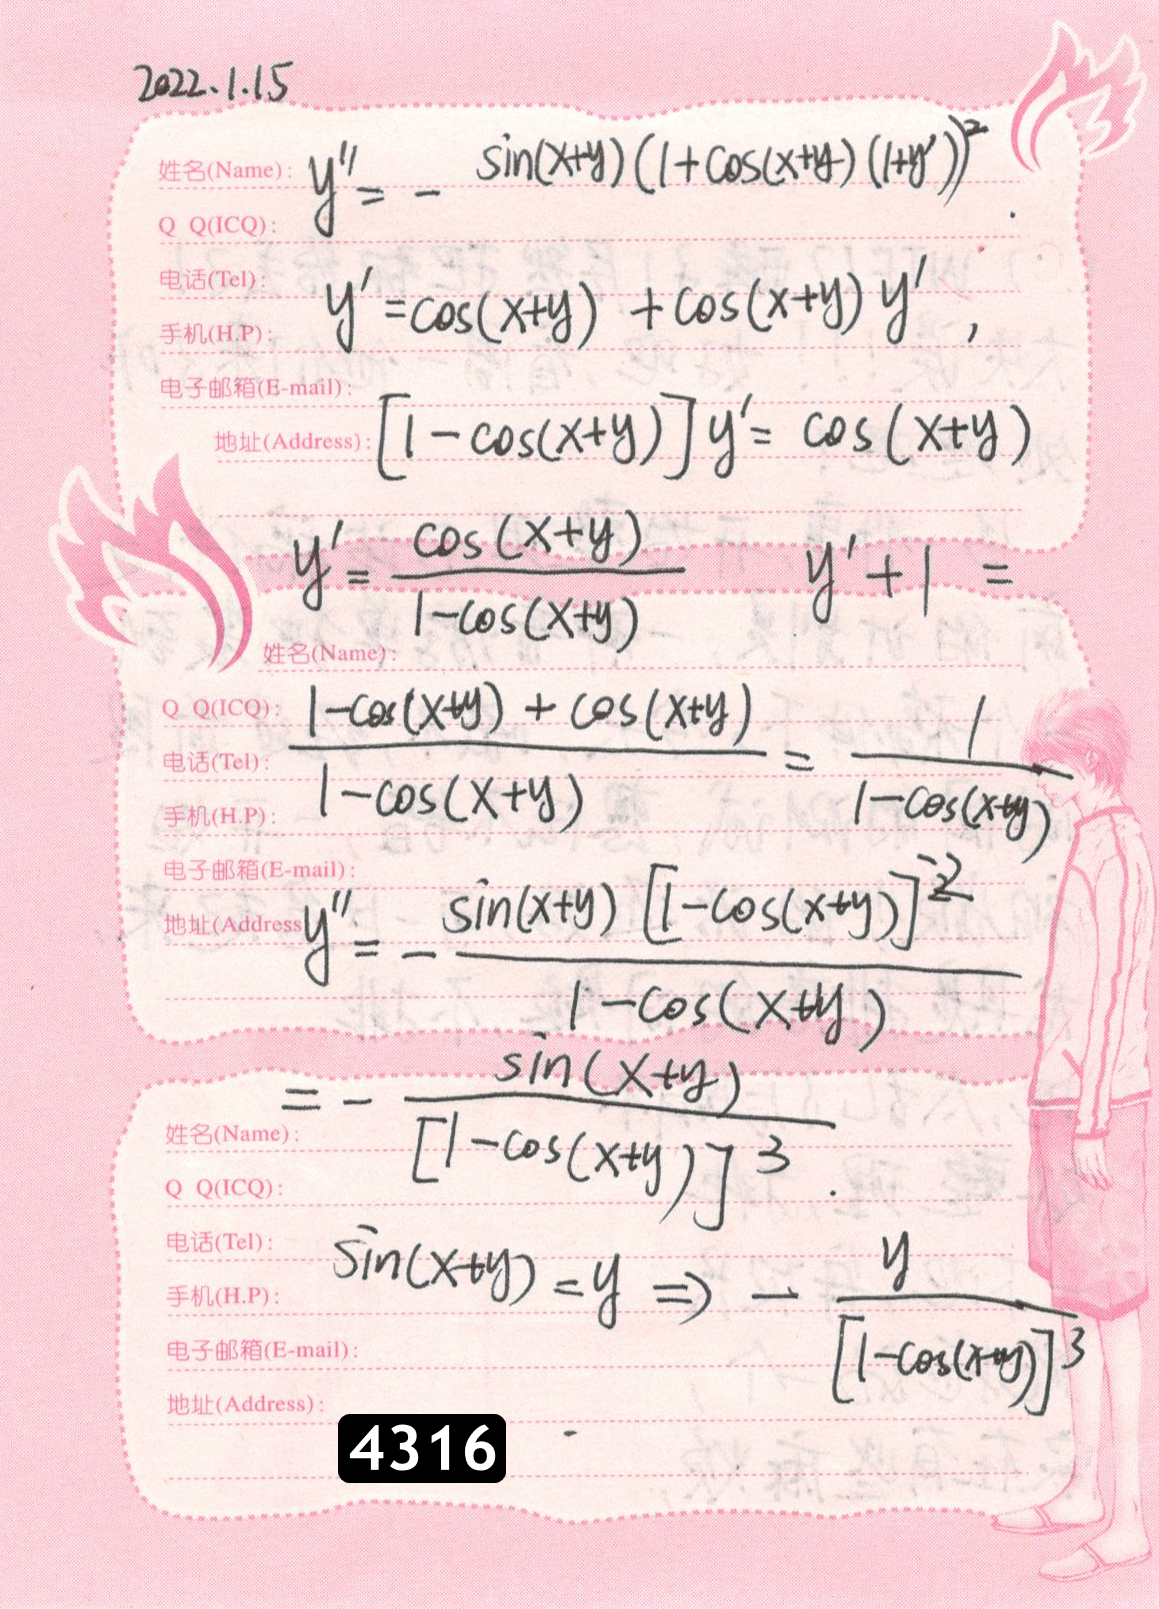 2022.1.15
姓名(Name): y'' = - sin(x+y)(1+cos(x+y)(1+y'))².
Q Q(ICQ):
电话(Tel): y' = cos(x+y) + cos(x+y) y',
手机(H.P):
电子邮箱(E-mail):
地址(Address): [1-cos(x+y)] y' = cos(x+y)
y' = cos(x+y) / 1-cos(x+y)  y'+1 =
姓名(Name):
Q Q(ICQ):
电话(Tel): 1-cos(x+y) + cos(x+y) / 1-cos(x+y) = 1 / 1-cos(x+y)
手机(H.P):
电子邮箱(E-mail):
地址(Address y'' = - sin(x+y) [1-cos(x+y)]⁻² / 1-cos(x+y)
= - sin(x+y) / [1-cos(x+y)]³.
姓名(Name):
Q Q(ICQ):
电话(Tel):
手机(H.P): sin(x+y) = y => - y / [1-cos(x+y)]³
电子邮箱(E-mail):
地址(Address):
4316